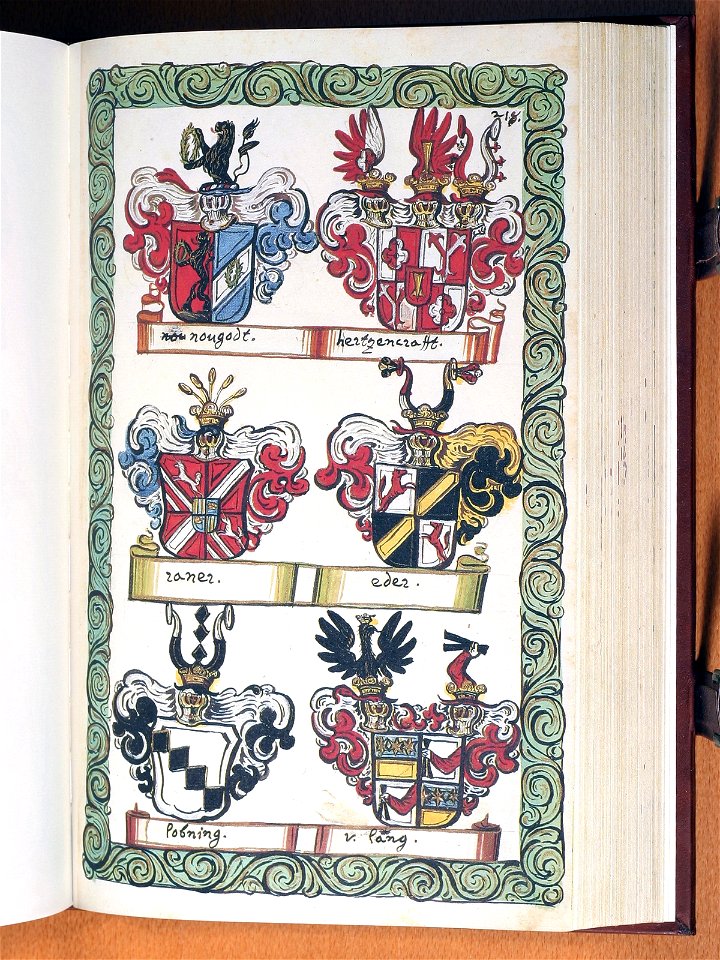 218.
nou nougodt.
hertzencrafft.
raner.
eder.
lobning.
v. läng.